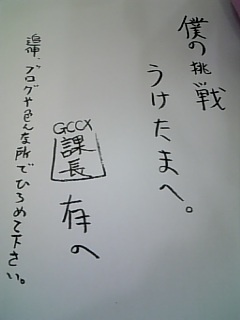 僕の挑戦
うけたまへ。
GCCX
課長
有のへ
追伸、ブログや色んな所でひろめて下さい。